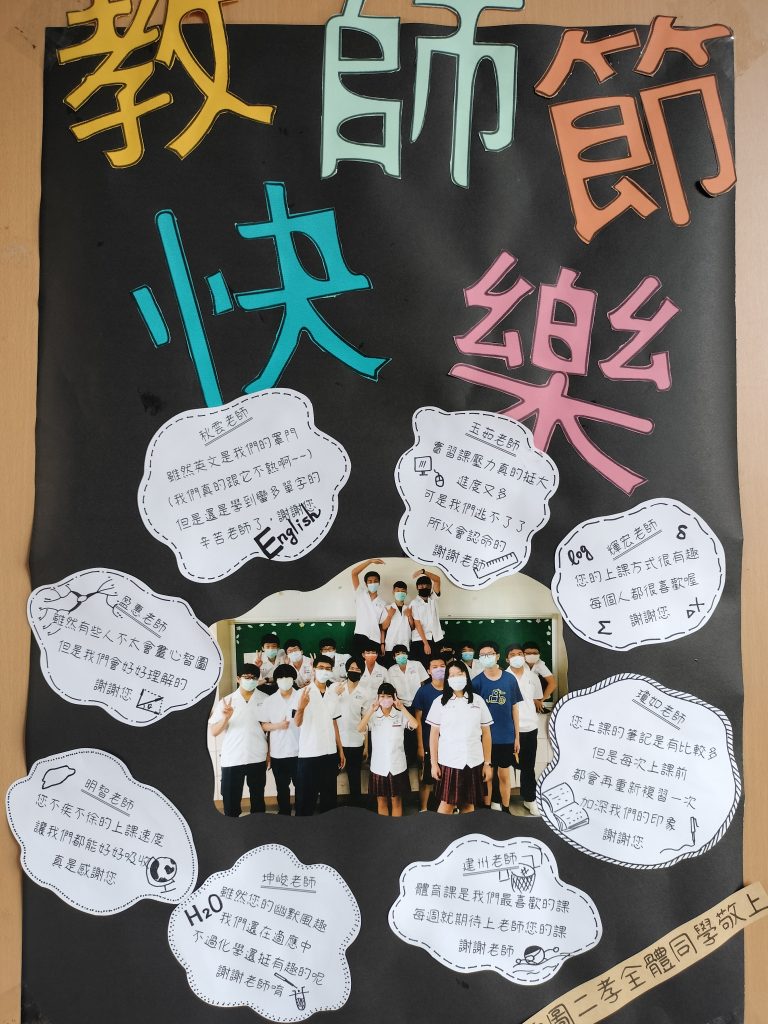 教師節
快樂
秋雲老師
雖然英文是我們的罩門
(我們真的跟它不熟啊~~)
但是還是學到蠻多單字的
辛苦老師了 謝謝您
English
玉茹老師
實習課壓力真的挺大
進度又多
可是我們逃不了了
所以會認命的
謝謝老師
log 輝宏老師 8
您的上課方式很有趣
每個人都很喜歡喔
Σ 謝謝您
孟惠老師
雖然有些人不太會畫心智圖
但是我們會好好理解的
謝謝您
瓊如老師
您上課的筆記是有比較多
但是每次上課前
都會再重新複習一次
加深我們的印象
謝謝您
明智老師
您不疾不徐的上課速度
讓我們都能好好吸收
真是感謝您
坤峻老師
H2O
雖然您的幽默風趣
我們還在適應中
不過化學還挺有趣的呢
謝謝老師唷
建州老師
體育課是我們最喜歡的課
每週就期待上老師您的課
謝謝老師
圖二孝全體同學敬上